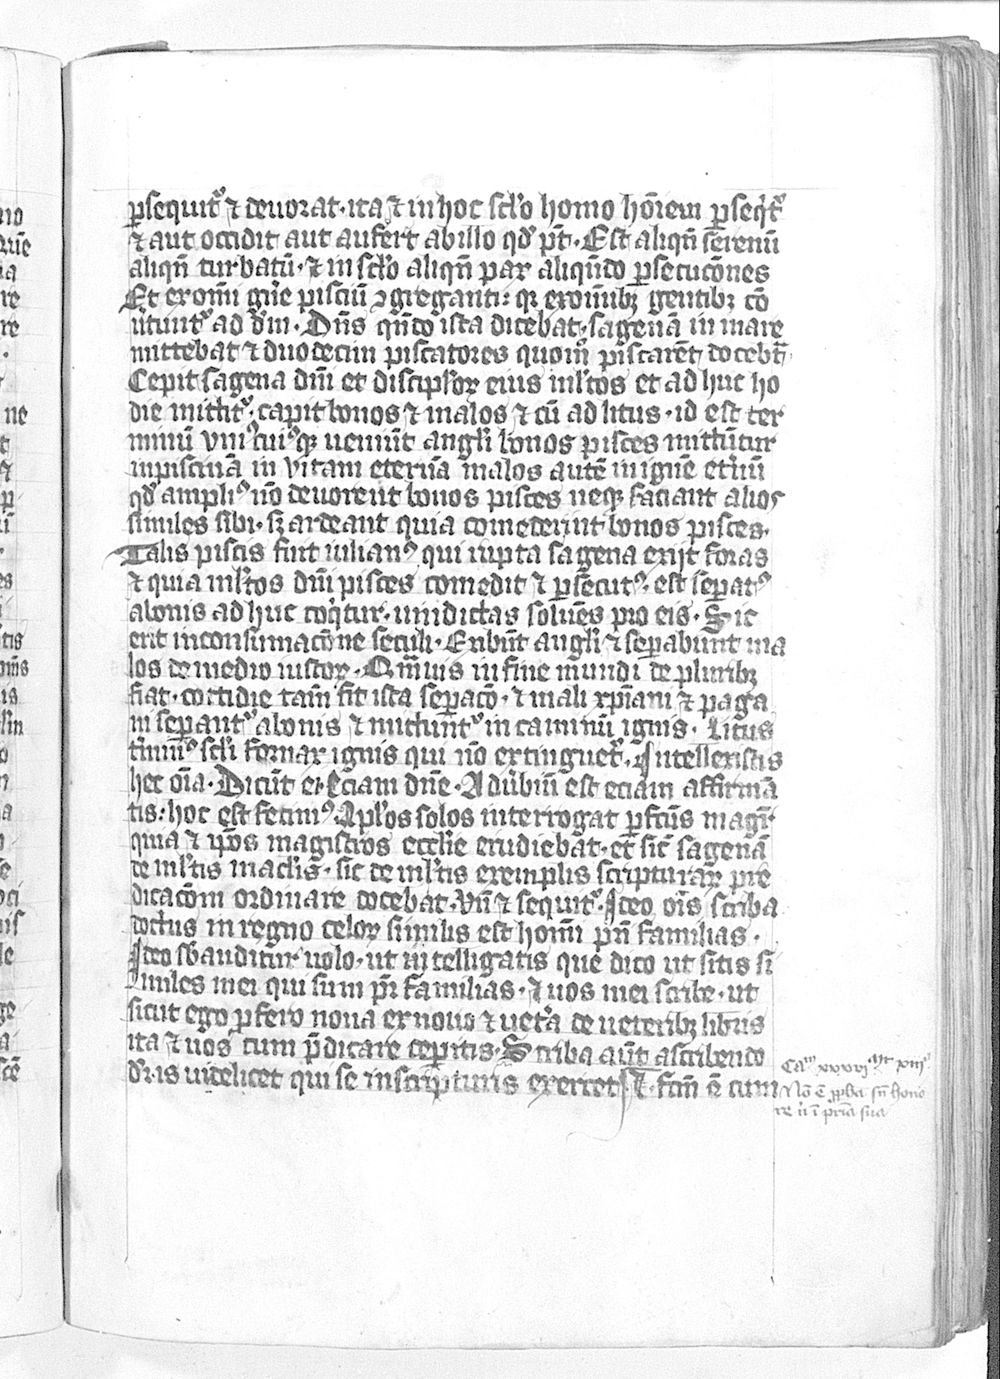 ꝑsequit᷑ ⁊ deuorat · ita ⁊ in hoc sclo homo ho̅iem ꝑseq̇t᷑
⁊ aut occidit aut aufert ab illo qd̕ pt̅ · Est aliqn̅ serenu̅
aliqn̅ turbatu̅ · ⁊ in sclo aliqn̅ pax aliqn̅do ꝑsecuc̅ones
Et ex om̅i gn̅e pisciu̅ ꝯgreganti : qꝛ ex om̅ibꝫ gentibꝫ co̅
u̅tunt᷑ ad dm̅ · Dn̅s qn̅do ista dicebat · sagena̅ in mare
mittebat ⁊ duodecim piscatores quom̅ piscare̅t᷑ docebt̅
Cepit sagena dn̅i et discipl̕oꝝ eius ml̕tos et ad huc ho
die mittit᷑ · capit bonos ⁊ malos ⁊ cu̅ ad litus · id est ter
minu̅ vniꝰcuiꝰqꝫ ueniu̅t angl̕i bonos pisces mittu̅tur
in piscina̅ in vitam eterna̅ malos aute̅ in igne̅ et̕nu̅
qd̕ ampliꝰ no̅ deuorent bonos pisces neqꝫ faciant alios
similes sibi · sꝫ ardeant quia comederu̅t bonos pisces ·
Talis piscis fuit iulianꝰ qui rupta sagena exijt foras
⁊ quia ml̕tos dn̅i pisces comedit ⁊ ꝑsecutꝰ · est seꝑatꝰ
a bonis ad huc coq̇tur · uindictas solue̅s pro eis · Sic
erit in consumac̅one seculi · Exibu̅t angl̕i ⁊ seꝑabunt ma
los de medio iustoꝝ · Qm̅uis in fine mundi de pluribꝫ
fiat · cottidie tam̅ fit ista seꝑac̅o · ⁊ mali xp̅iani ⁊ paga
ni seꝑant᷑ a bonis ⁊ mittunt᷑ in caminu̅ ignis · Litus
t̕minꝰ scl̕i fornax ignis qui no̅ extinguet᷑ · Intellexistis
hec o̅ia · Dicu̅t ei · Eciam dn̅e · Adu̅biu̅ est eciam affirma̅
tis : hoc est fecimꝰ · Apl̕os solos interrogat ꝑfcu̅s magr̅
quia ⁊ ip̅os magistros eccl̕ie erudiebat · et sic̅ sagena̅
de ml̕tis maclis̅ · sic de ml̕tis exemplis scripturaꝝ pre
dicac̅om ordinare docebat · Vn̅ ⁊ sequit᷑ · Ideo o̅is scriba
doctus in regno celoꝝ similis est homi̅ pr̅i familias ·
Ideo sb̕auditur uolo · ut intelligatis que dico ut sitis si̅
miles mei qui sum pr̅ familias · ⁊ uos mei scribe · ut
sicut ego ꝓfero noua ex nouo ⁊ uet̕a de ueteribꝫ libris
ita ⁊ uos cum p̅dicare ceperitis · Scriba au̅t a scribendo
dr̅ · is uidelicet qui se in scripturis exercet · ⁊ · fcm̅ e̅ cum
Cam xxxvi Mt xiii
No̅ e̅ ꝓph̅a sn̅ hono
re n̅ i̅ pr̅ia sua